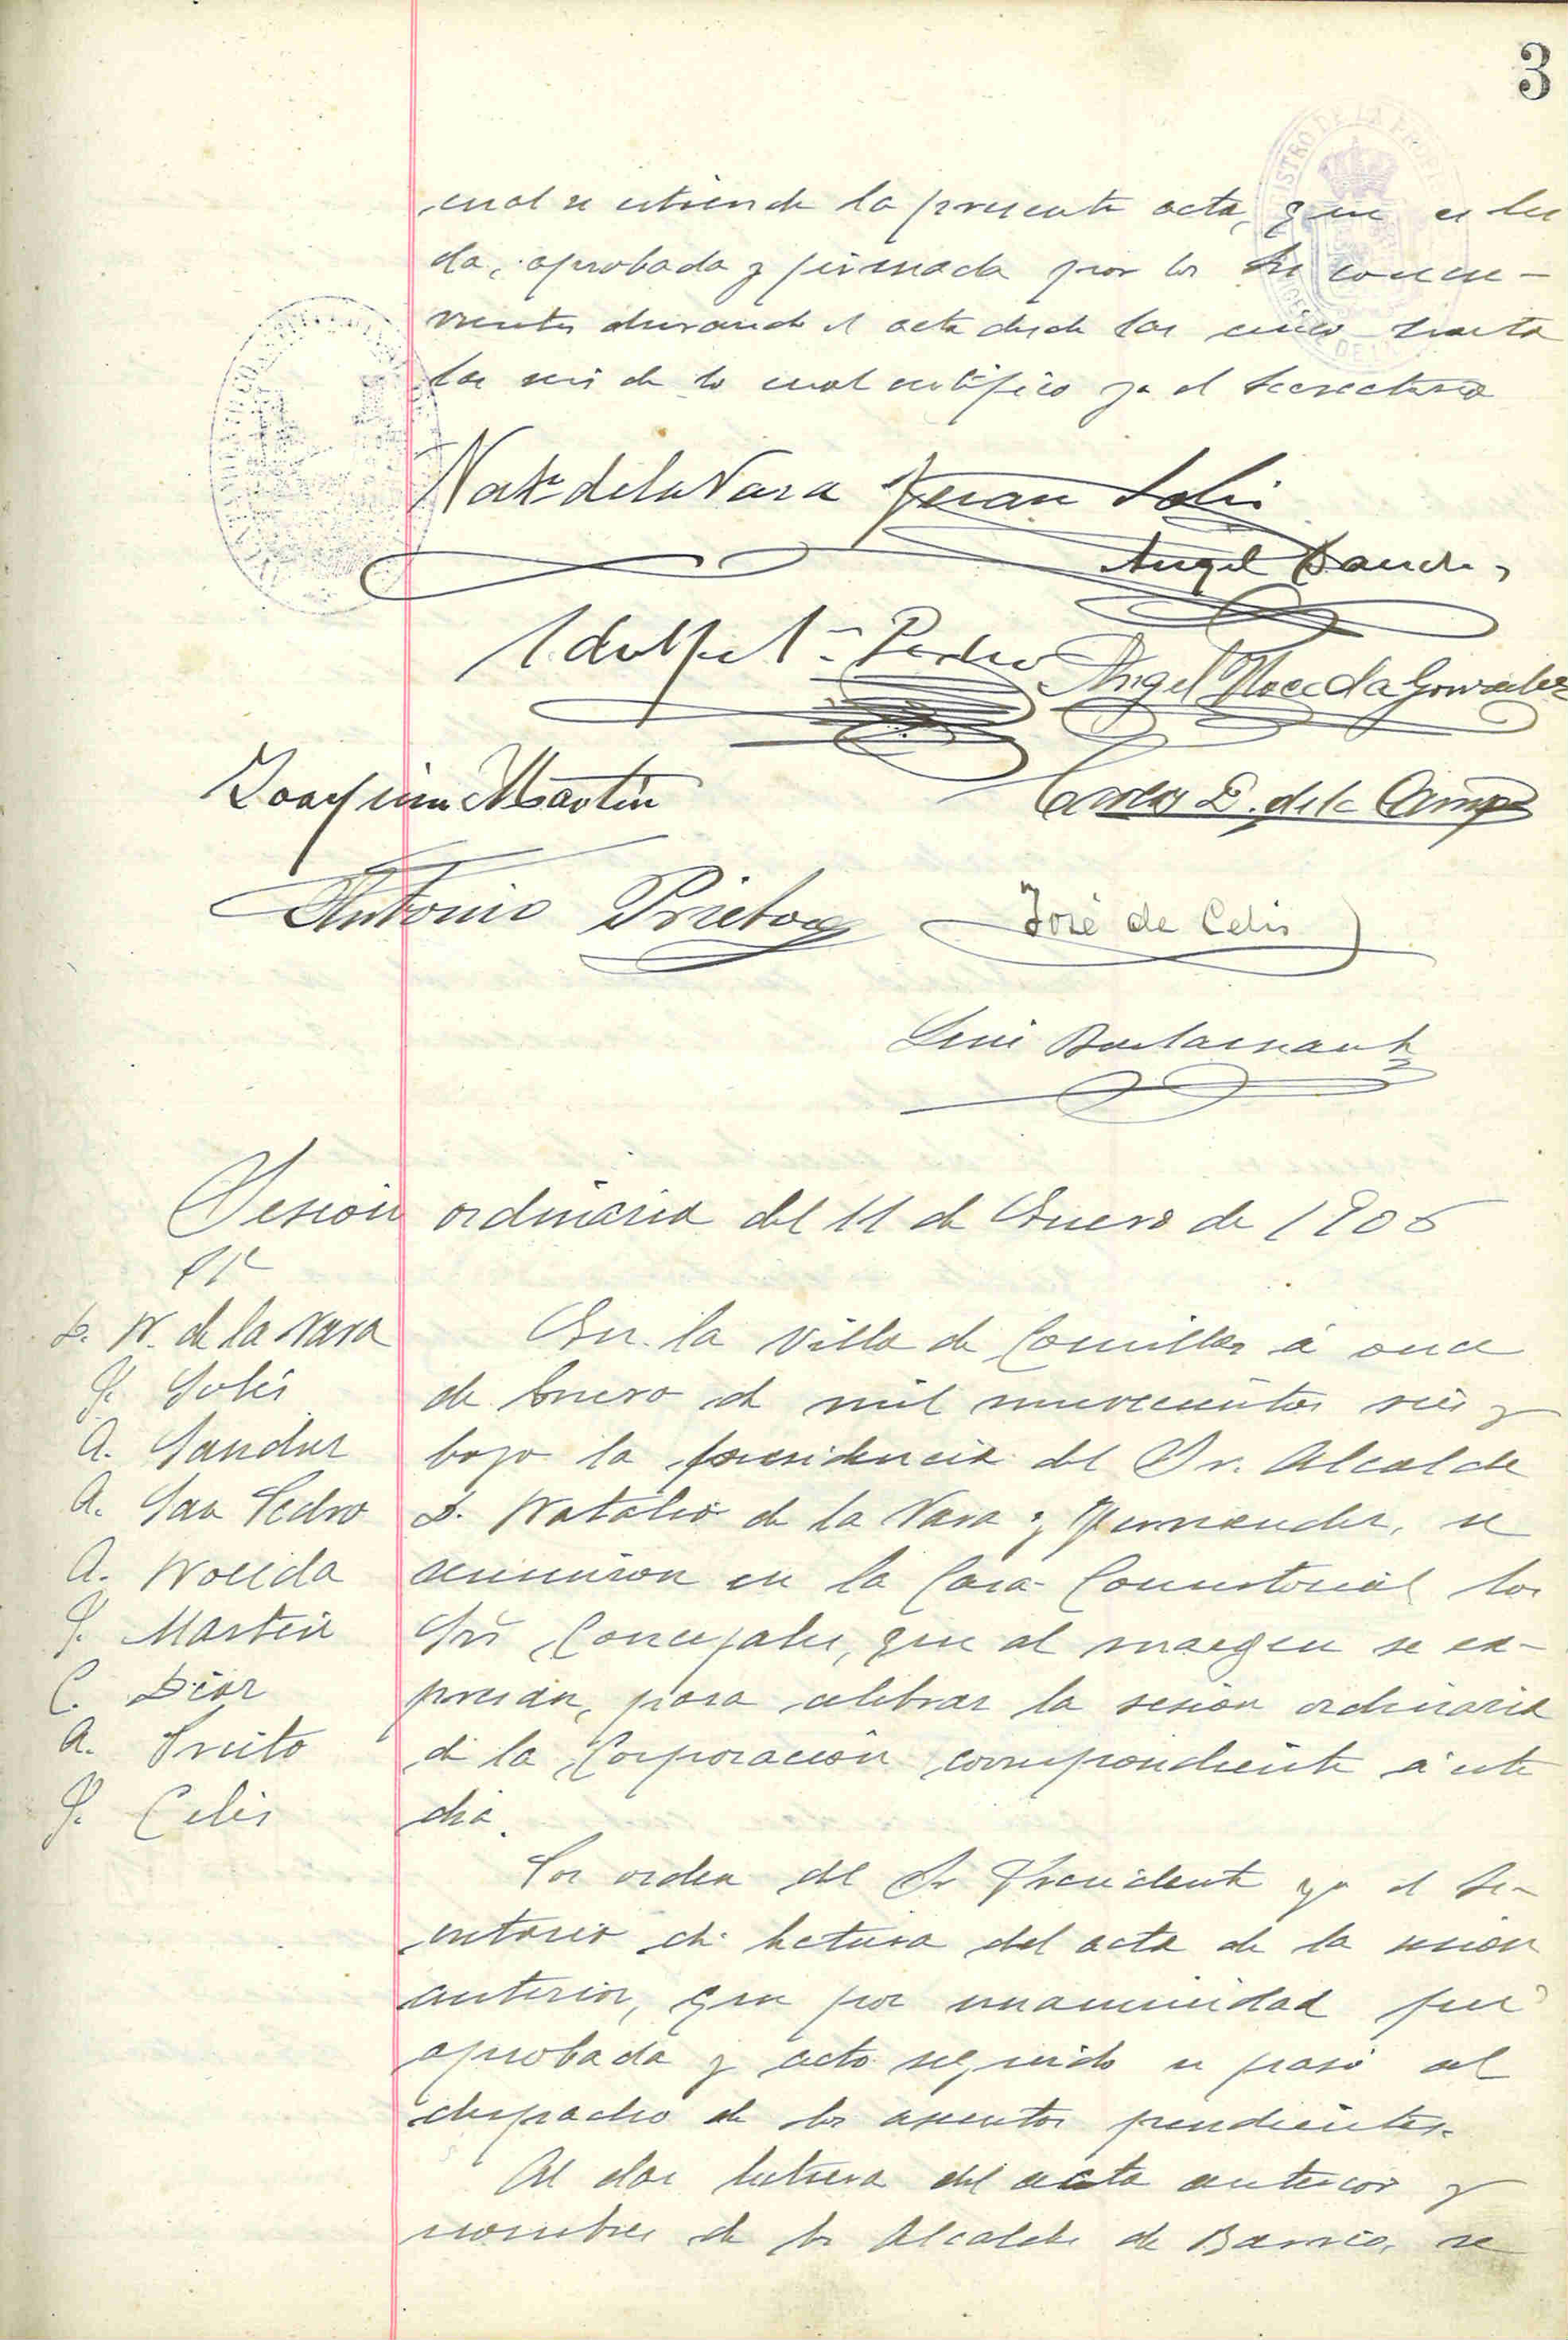 3
cual se extiende la presente acta, que es lei
da, aprobada y firmada por los Srs concu-
rrentes durando el acta desde las cinco hasta
las seis de lo cual certifico yo el Secretario
Nat° de la Vara Juan Solis
Angel Sanchez
Adolfo S. Pedro Angel Noceda Gonzalez
Joaquin Martin Carlos D. de la Campa
Antonio Prieto José de Celis
Luis Bustamante
Sesion ordinaria del 11 de Enero de 1906
D. N. de la Vara
J. Solis
A. Sanchez
A. San Pedro
A. Noceda
J. Martin
C. Diaz
A. Prieto
J. Celis
En la villa de Comillas á once
de Enero de mil novecientos seis y
bajo la presidencia del Sr. Alcalde
D. Natalio de la Vara y Fernandez, se
reunieron en la Casa Consistorial los
Srs Concejales, que al margen se ex-
presan, para celebrar la sesion ordinaria
de la Corporación correspondiente á este
dia.
Por orden del Sr Presidente yo el Se-
cretario di lectura del acta de la sesion
anterior, que por unanimidad fué
aprobada y acto seguido se pasó al
despacho de los asuntos pendientes.
Al dar lectura del acta anterior y
nombres de los Alcaldes de Barrio, se